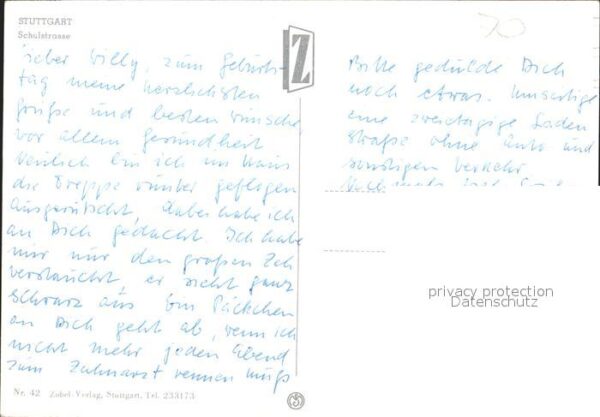 STUTTGART
Schulstrasse
Lieber Willy, zum Geburts-
tag meine herzlichsten
Grüße und besten Wünsche
vor allem Gesundheit
Neulich bin ich im Haus
die Treppe runter geflogen
Ausgerutscht, dabei habe ich
an Dich gedacht Ich habe
mir nur den großen Zeh
verstaucht er sieht ganz
schwarz aus Ein Päckchen
an Dich geht ab, wenn ich
nicht mehr jeden Abend
zum Zahnarzt rennen muß
Nr. 42 Zobel-Verlag, Stuttgart, Tel. 233173
Z
70
Bitte gedulde Dich
noch etwas. Umseitig
eine zweietagige Laden
straße ohne Auto und
sonstigen Verkehr.
Nochmals
privacy protection
Datenschutz